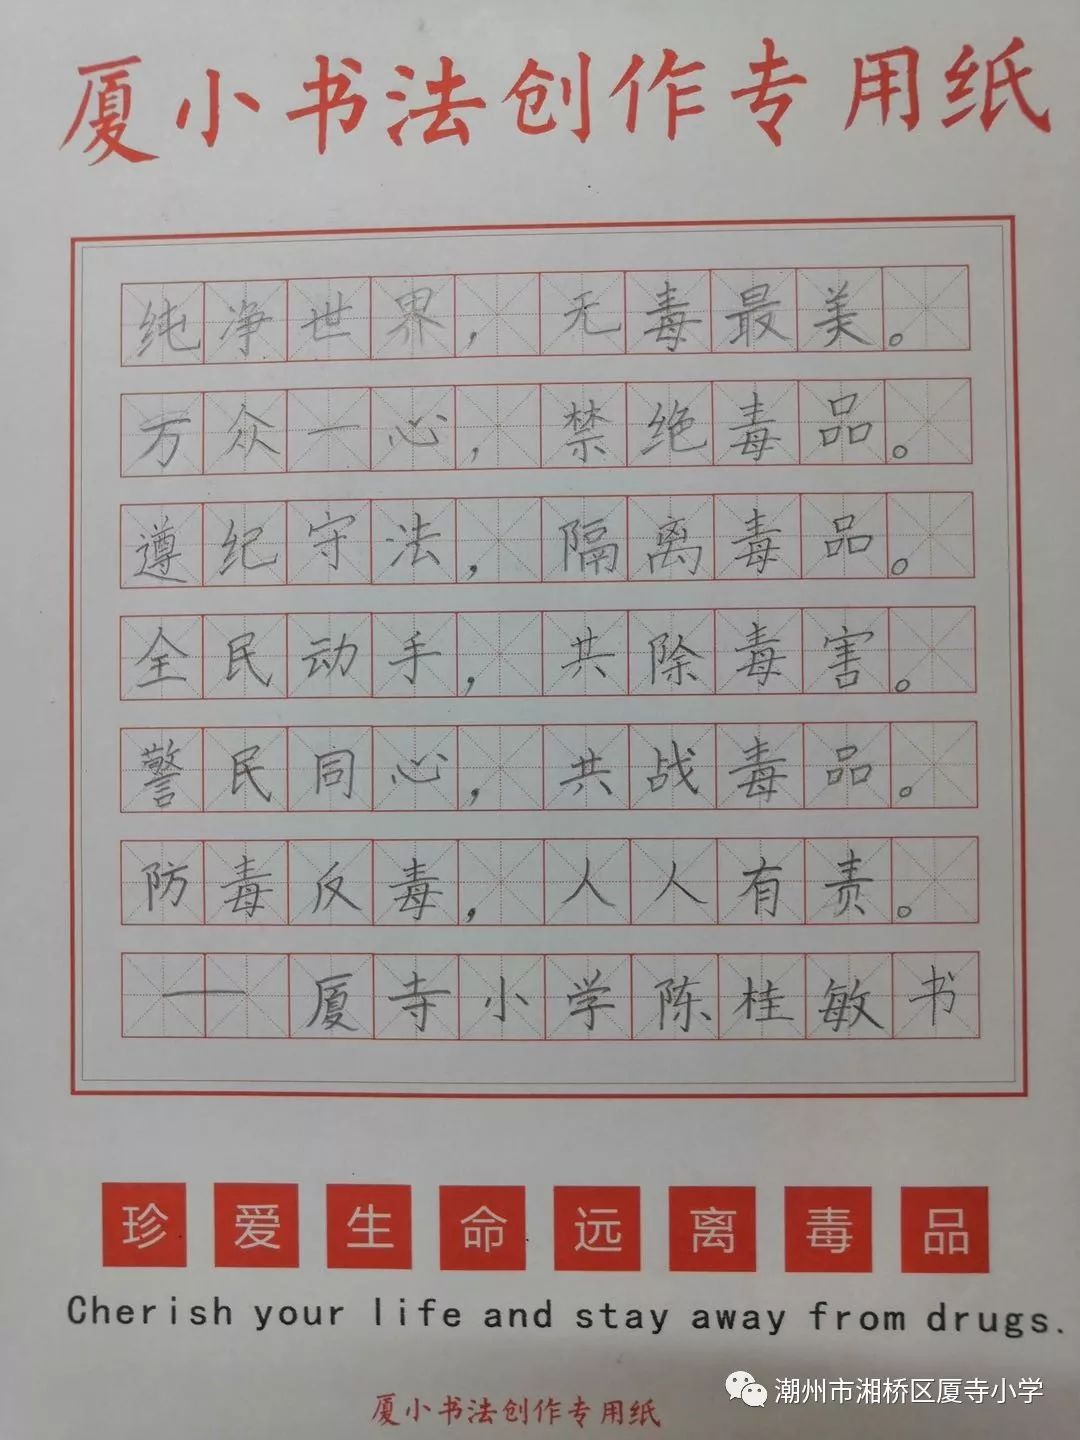 厦小书法创作专用纸
纯净世界，无毒最美。
万众一心，禁绝毒品。
遵纪守法，隔离毒品。
全民动手，共除毒害。
警民同心，共战毒品。
防毒反毒，人人有责。
——厦寺小学陈桂敏书
珍爱生命远离毒品
Cherish your life and stay away from drugs.
潮州市湘桥区厦寺小学
厦小书法创作专用纸